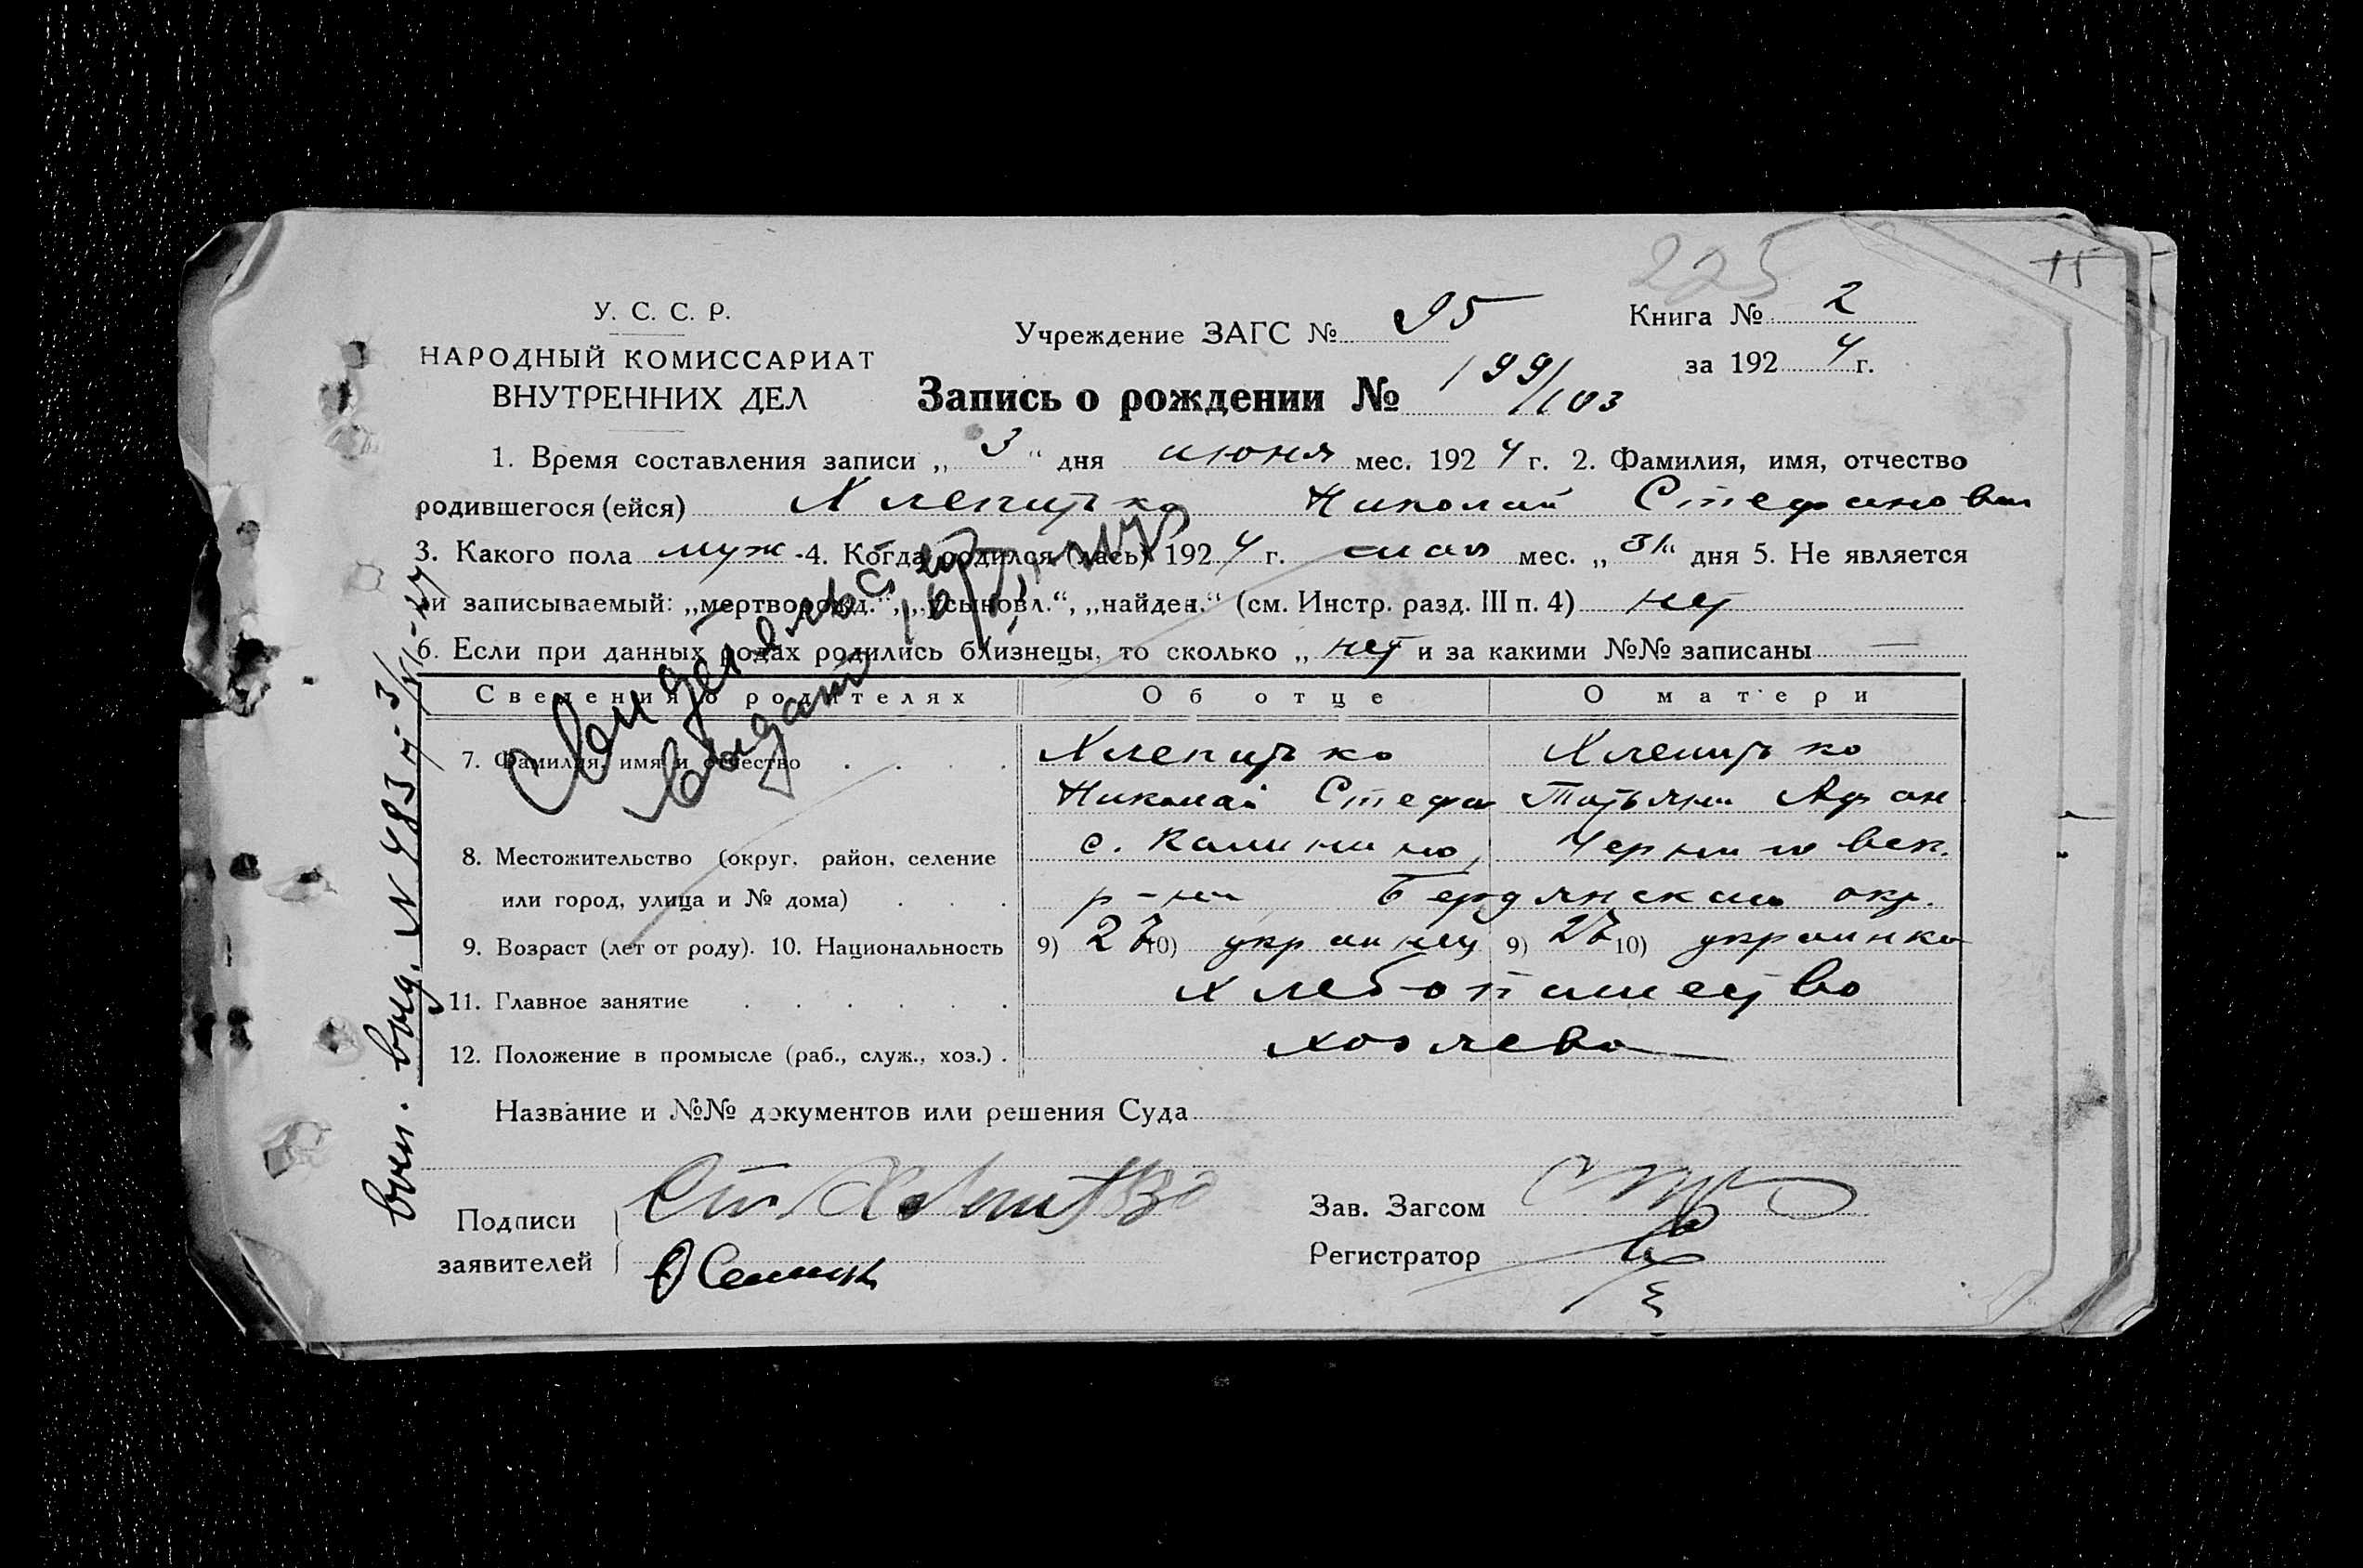 225
15
У. С. С. Р.
НАРОДНЫЙ КОМИССАРИАТ
ВНУТРЕННИХ ДЕЛ
Учреждение ЗАГС № 95
Книга № 2
за 1924 г.
Запись о рождении № 199/103
1. Время составления записи „ 3 “ дня июня мес. 1924 г. 2. Фамилия, имя, отчество
родившегося (ейся) Хлепитько Николай Стефанович
3. Какого пола муж - 4. Когда родился (лась) 1924 г. мая мес. „ 31 “ дня 5. Не является
ли записываемый: „мертворожд.“, „усыновл.“, „найден.“ (см. Инстр. разд. III п. 4) нет
6. Если при данных родах родились близнецы, то сколько „ нет и за какими №№ записаны —
Сведения о родителях Об отце О матери
7. Фамилия, имя и отчество . . . . Хлепитько Хлепитько
Николай Стефан Татьяна
8. Местожительство (округ, район, селение с. Калинино, Черниговск.
или город, улица и № дома) . . . р-на Бердянском окр.
9. Возраст (лет от роду). 10. Национальность 9) 27 10) украинец 9) 27 10) украинка
11. Главное занятие . . . . . . хлебопашество
12. Положение в промысле (раб., служ., хоз.) . хозяева
Свидетельство
выдано
Название и №№ документов или решения Суда
Подписи
заявителей
Зав. Загсом
Регистратор
выд. N 483